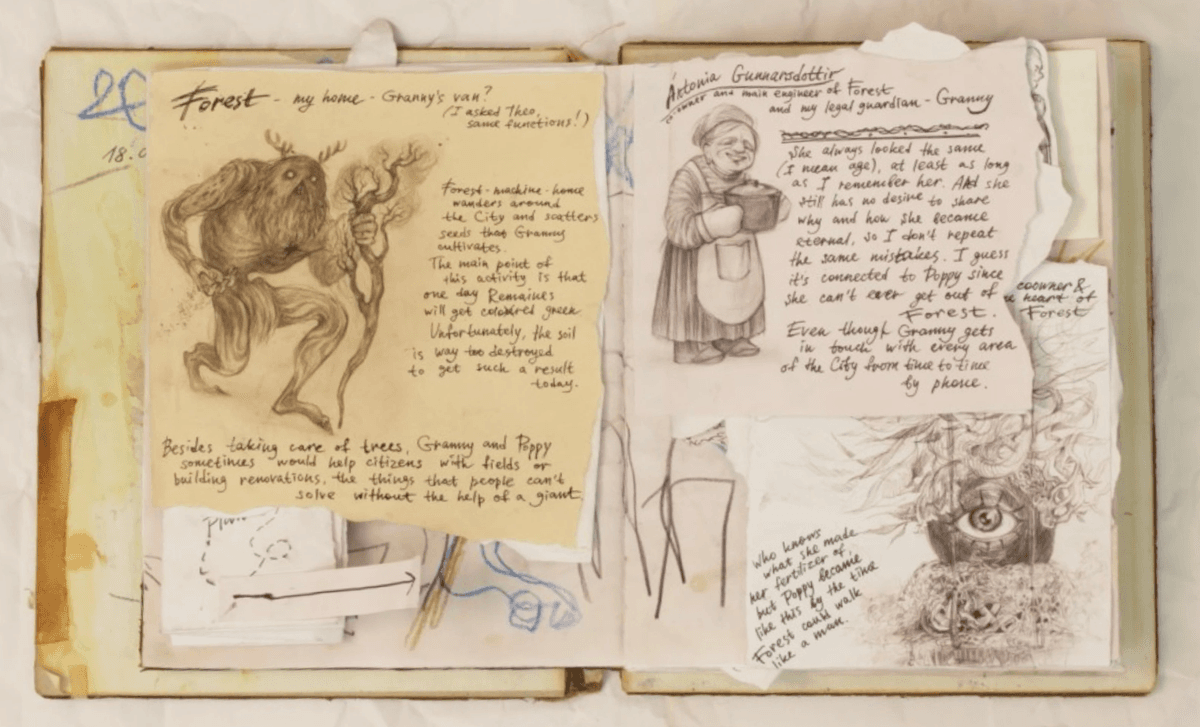 Forest - my home - Granny's van?
(I asked Theo,
same functions!)
Forest-machine-home
wanders around
the City and scatters
seeds that Granny
cultivates.
The main point of
this activity is that
one day Remaines
will get colored green.
Unfortunately, the soil
is way too destroyed
to get such a result
today.
Besides taking care of trees, Granny and Poppy
sometimes would help citizens with fields or
building renovations, the things that people can't
solve without the help of a giant.
18.0
Antonia Gunnarsdottir
coowner and main engineer of Forest
and my legal guardian - Granny
She always looked the same
(I mean age), at least as long
as I remember her. And she
still has no desire to share
why and how she became
eternal, so I don't repeat
the same mistakes. I guess
it's connected to Poppy since
she can't ever get out of
Forest.
Even though Granny gets
in touch with every area
of the City from time to time
by phone.
coowner &
heart of
Forest
Who knows
what she made
her fertilizer of,
but Poppy became
like this by the time
Forest could walk
like a man.